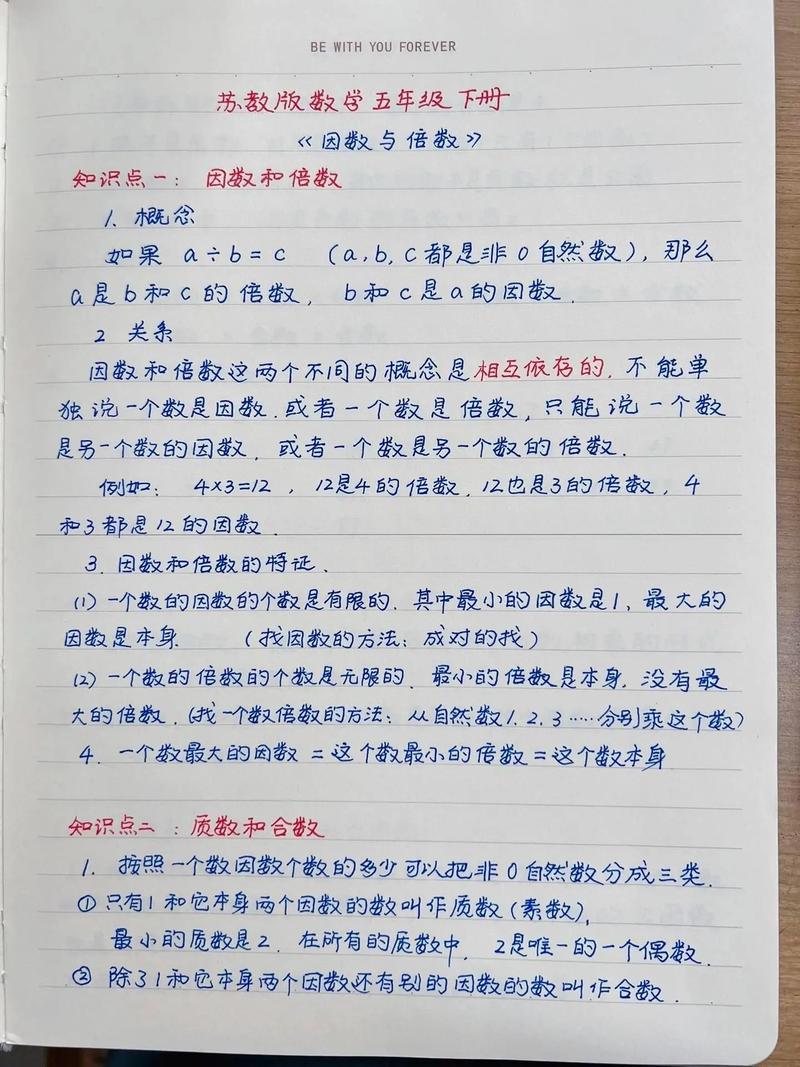 BE WITH YOU FOREVER
苏教版数学五年级下册
《因数与倍数》
知识点一：因数和倍数
1. 概念
如果 a÷b=c （a,b,c都是非0自然数），那么
a是b和c的倍数，b和c是a的因数.
2 关系
因数和倍数这两个不同的概念是相互依存的.不能单
独说一个数是因数.或者一个数是倍数，只能说一个数
是另一个数的因数，或者一个数是另一个数的倍数.
例如：4×3=12，12是4的倍数.12也是3的倍数，4
和3都是12的因数.
3. 因数和倍数的特征.
(1) 一个数的因数的个数是有限的.其中最小的因数是1、最大的
因数是本身 （找因数的方法：成对的找）
(2) 一个数的倍数的个数是无限的.最小的倍数是本身.没有最
大的倍数.（找一个数倍数的方法：从自然数1.2.3……分别乘这个数）
4. 一个数最大的因数=这个数最小的倍数=这个数本身
知识点二：质数和合数
1. 按照一个数因数个数的多少可以把非0自然数分成三类.
①只有1和它本身两个因数的数叫作质数（素数），
最小的质数是2.在所有的质数中，2是唯一的一个偶数.
②除了1和它本身两个因数还有别的因数的数叫作合数.